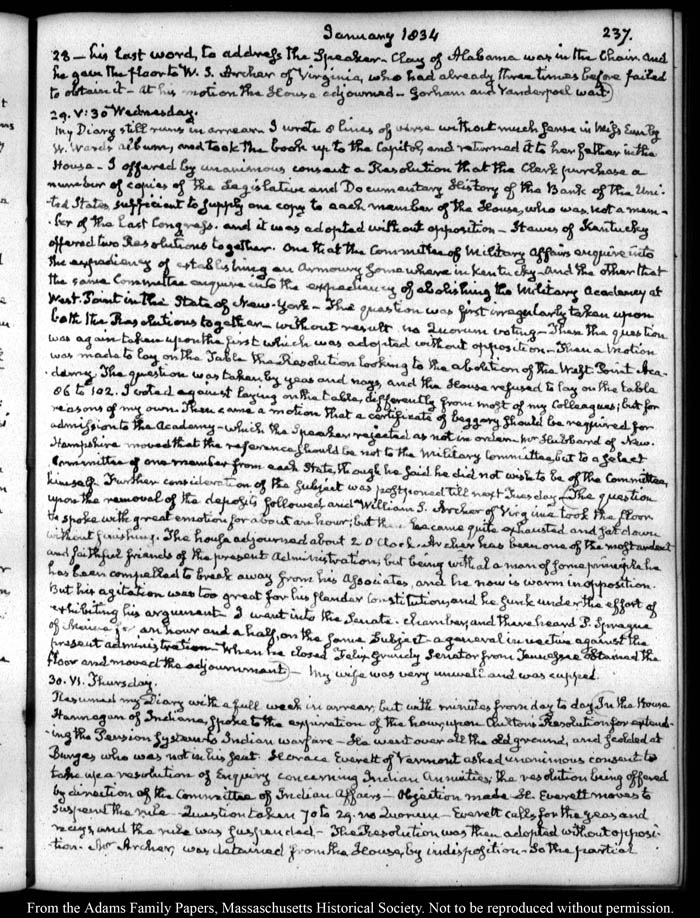 January 1834
237.
28 — his last word, to address the Speaker – Clay of Alabama was in the Chair, and
he gave the floor to W. S. Archer of Virginia, who had already three times before failed
to obtain it – At his motion the House adjourned – Gorham and Vanderpoel wait)
29. V: 30 Wednesday.
My Diary still runs in arrear. I wrote 8 lines of verse without much sense in Miss Emily
W. Wards album, and took the book up to the Capitol, and returned it to her father in the
House – I offered by unanimous consent a Resolution that the Clerk purchase a
number of copies of the Legislative and Documentary History of the Bank of the Uni-
-ted States sufficient to supply one copy to each member of the House, who was not a mem-
-ber of the last Congress. and it was adopted without opposition – Hawes of Kentucky
offered two Resolutions together. One that the Committee of Military Affairs enquire into
the expediency of establishing an Armoury somewhere in Kentucky – and the other that
the same Committee enquire into the expediency of abolishing the Military Academy at
West-Point in the State of New-York – The question was first irregularly taken upon
both the Resolutions together – without result. no Quorum voting – Then the question
was again taken upon the first which was adopted without opposition – Then a motion
was made to lay on the Table the Resolution looking to the abolition of the West Point Aca-
-demy. The question was taken by yeas and nays, and the House refused to lay on the table
86 to 102. I voted against laying on the table, differently from most of my Colleagues; but for
reasons of my own. Then came a motion that a certificate of beggary should be required for
admission to the Academy – which the Speaker rejected as not in order. Mr Hubbard of New-
Hampshire moved that the reference should be not to the Military Committee, but to a Select
Committee of one member from each State, though he said he did not wish to be of the Committee,
himself. Further consideration of the subject was postponed till next Tuesday – The question
upon the removal of the deposits followed and William S. Archer of Virginia took the floor
He spoke with great emotion for about an hour; but then became quite exhausted and sat down
without finishing. The house adjourned about 2 O'Clock. Archer has been one of the most ardent
and faithful friends of the present Administration, but being withal a man of some principle he
has been compelled to break away from his Associates, and he now is warm in opposition.
But his agitation was too great for his slender Constitution, and he sunk under the effort of
exhibiting his argument – I went into the Senate-chamber, and there heard P. Sprague
of Maine for an hour and a half, on the same subject – a general invective against the
present administration – When he closed Felix Grundy Senator from Tennessee obtained the
floor and moved the adjournment) – My wife was very unwell and was cupped.
30. VI. Thursday.
Resumed my Diary with a full week in arrear, but with minutes from day to day. (In the House
Hannegan of Indiana, spoke to the expiration of the hour, upon Chilton's Resolution for extend-
-ing the Pension System to Indian warfare – He went over all the old ground, and scolded at
Burges who was not in his seat. Horace Everett of Vermont asked unanimous consent to
take up a resolution of Enquiry concerning Indian Annuities, the resolution being offered
by direction of the Committee of Indian Affairs – Objection made. H. Everett moves to
suspend the rule – Question taken 70 to 29. no Quorum – Everett calls for the yeas and
nays, and the rule was suspended – The Resolution was then adopted without opposi-
-tion. Mr Archer, was detained from the House, by indisposition – So the partial
From the Adams Family Papers, Massachusetts Historical Society. Not to be reproduced without permission.